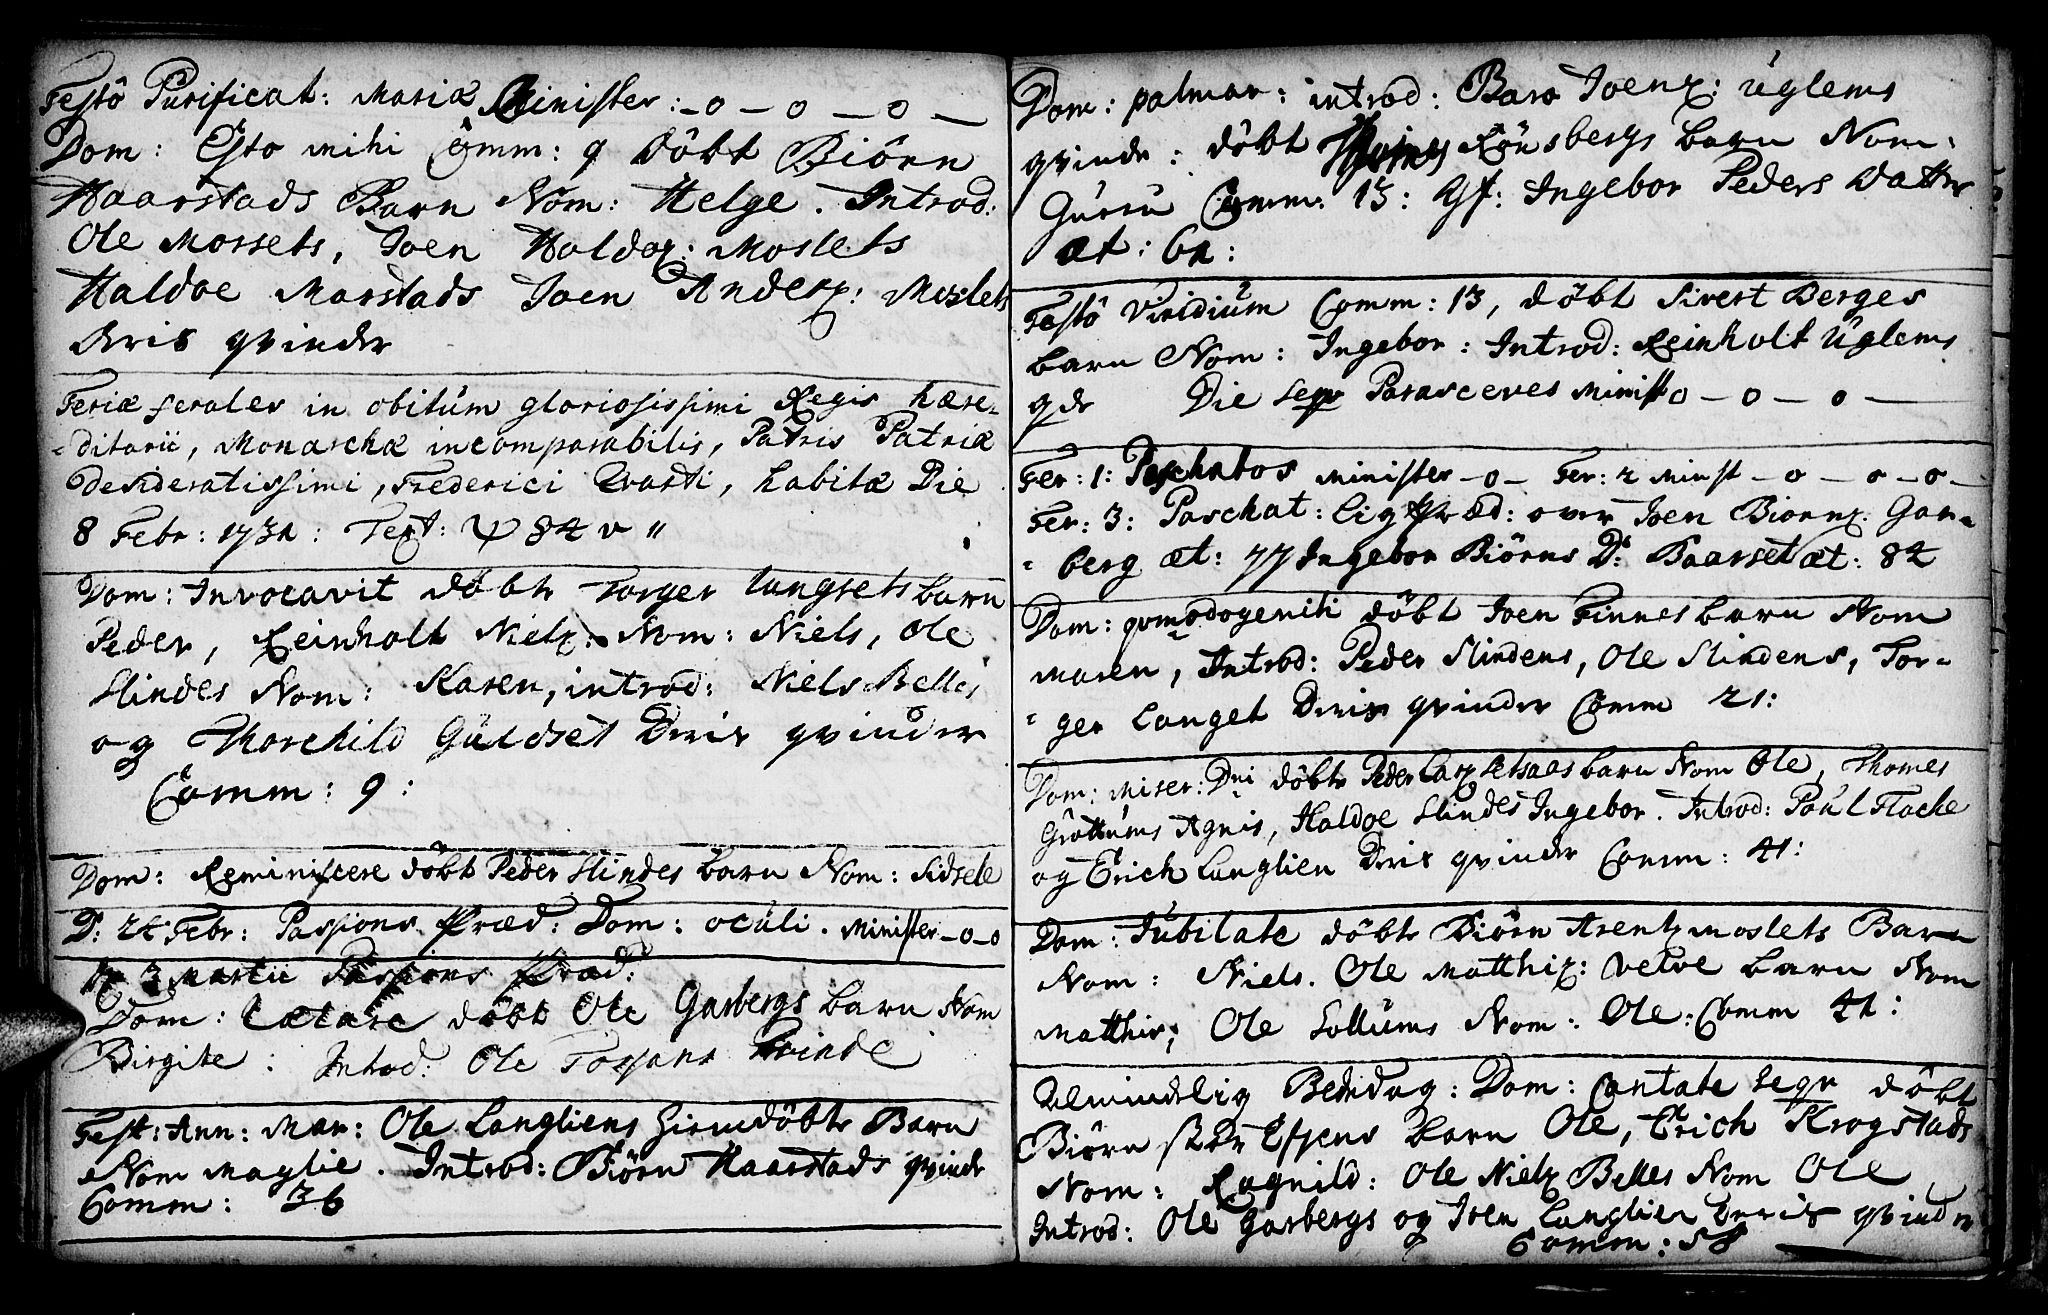 Festo Purificat: Mariæ Minister: _o_o_o_
Dom: Esto mihi Comm: 9 döbt Biörn
Haarstads Barn Nom: Helge. Introd:
Ole Morsets, Joen Haldox: Moslets
Haldoe Marstads Joen Anderx: Moslets
deris qvinder
Feriæ ferales in obitum gloriosissimi Regis hære-
-ditarii, Monarchæ incomparabilis, Patris Patriæ
desideratissimi, Frederici Qvarti, habitæ Die
8 Febr: 1731: Text: ψ 84 v 11
Dom: Invocavit döbt Torger Langsets barn
Peder, Reinholt Nielx: Nom: Niels, Ole
Slindes Nom: Karen, introd: Niels Belles
og Thorchild Guldset deris qvinder
Comm: 9:
Dom: Reminiscere döbt Peder Slindes barn Nom: Sidsele
D: 24 Febr: Passions Præd: Dom: oculi. Minister _o_o
3 Martii Passions Præd:
Dom: Lætare döbt Ole Garbergs barn Nom
Birgite: Introd: Ole qvinde
Fest: Ann: Mar: Ole Langliens hiemdöbt Barn
Nom Maglie. Introd: Biörn Haarstads qvinde
Comm: 36
Dom: palmar: introd: Baro Joenx: Uglems
qvinde: döbt Rönsbergs barn Nom:
Guru Comm: 13: Ingebor Peders datter
æt: 61:
Festo Viridium Comm: 13, döbt Sivert Berges
barn Nom: Ingebor: Introd: Reinholt Uglems
qde Die seqv Parasceves Minist o_o_o_
Fer: 1: Paschatos minister _o_ Fer: 2 Minist _o_o_o_
Fer: 3: Paschat: Ligpræd: over Joen Biörnx. Gar-
-berg æt: 77 Ingebor Biörns D: Baarset æt: 82
Dom: qvasimodogeniti döbt Joen Finnes barn Nom
Maren, Introd: Peder Slindens, Ole Slindens, Tor-
-ger Langet deris qvinder Comm 21:
Dom: Miser: Dni döbt Peder Larx Setsaas barn Nom Ole, Thomes
Grøttums Agnis, Haldoe Slindes Ingebor. Introd: Paul Flache
og Erich Langlien deris qvinder Comm: 41:
Dom: Jubilate döbt Biörn Arentx Moslets Barn
Nom: Niels. Ole Matthix: Velve barn Nom
Matthis, Ole Sollums Nom: Ole: Comm 41:
Almindelig Bededag: Dom: Cantate seqv döbt
Biörn barn Ole, Erich Krogstads
Nom: Ragnild: Ole Nielx Belles Nom Ole
Introd: Ole Garbergs og Joen Langlien deris qvinder
Comm: 58